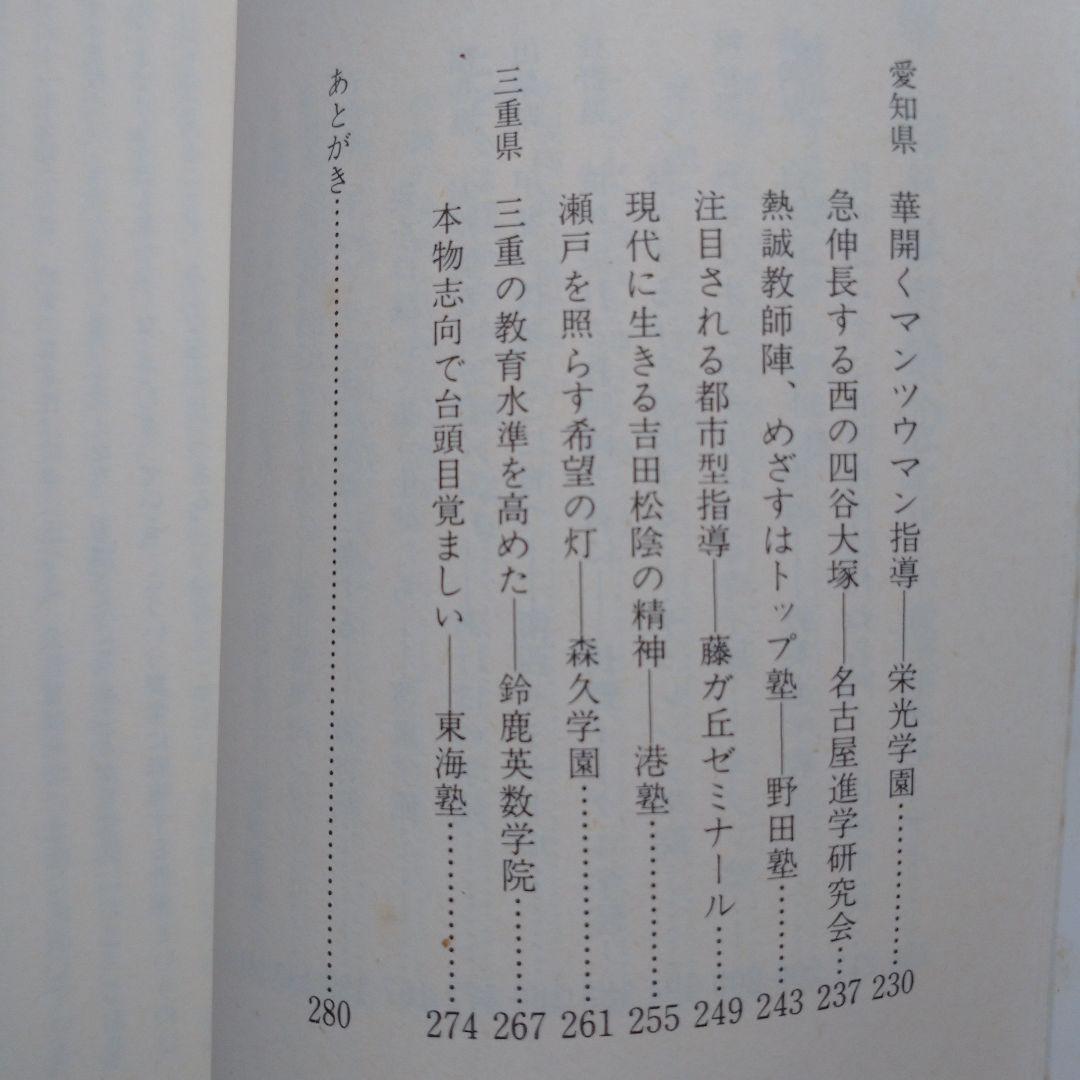 愛知県　華開くマンツウマン指導――栄光学園…………230
急伸長する西の四谷大塚――名古屋進学研究会……237
熱誠教師陣、めざすはトップ塾――野田塾…………243
注目される都市型指導――藤が丘ゼミナール………249
現代に生きる吉田松陰の精神――港塾…………255
瀬戸を照らす希望の灯――森久学園…………261
三重県　三重の教育水準を高めた――鈴鹿英数学院…………267
本物志向で台頭目覚ましい――東海塾…………274
あとがき…………280